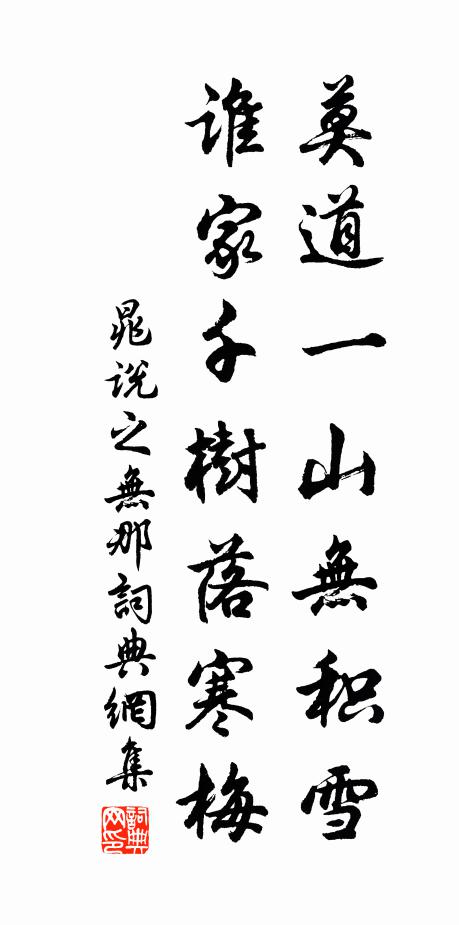 莫道一山無积雪
谁家千樹落寒梅
晁说之無那詞典網集
詞典网印